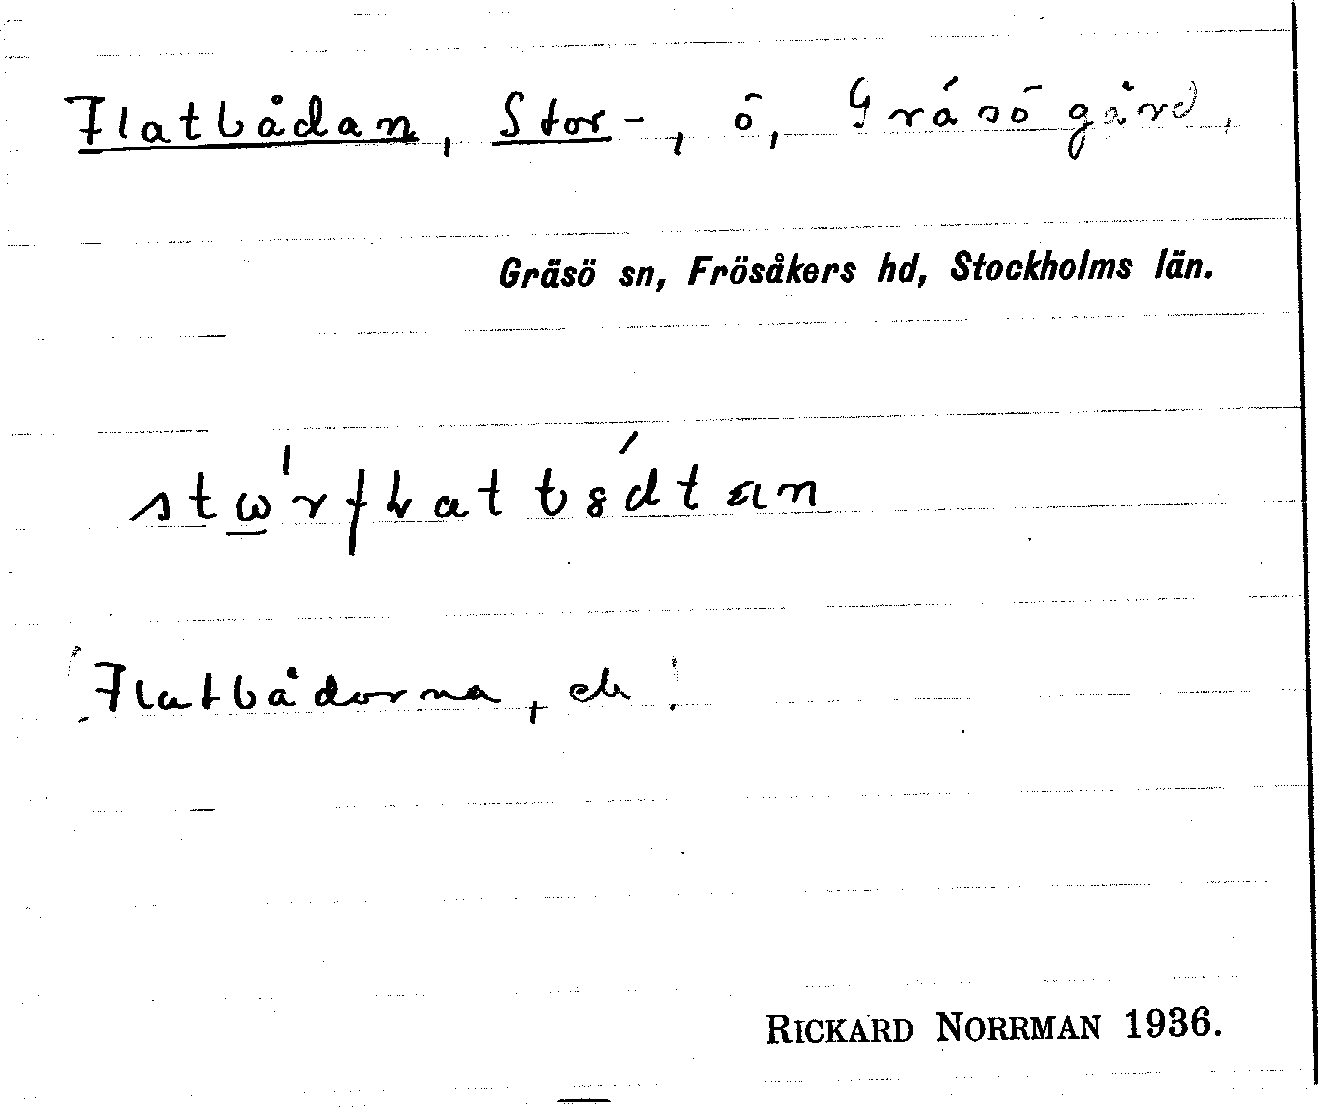 Flatbådan, Stor-, ö, Gräsö gård,
Gräsö sn, Frösåkers hd, Stockholms län.
Flatbådorna, ek
RICKARD NORRMAN 1936.